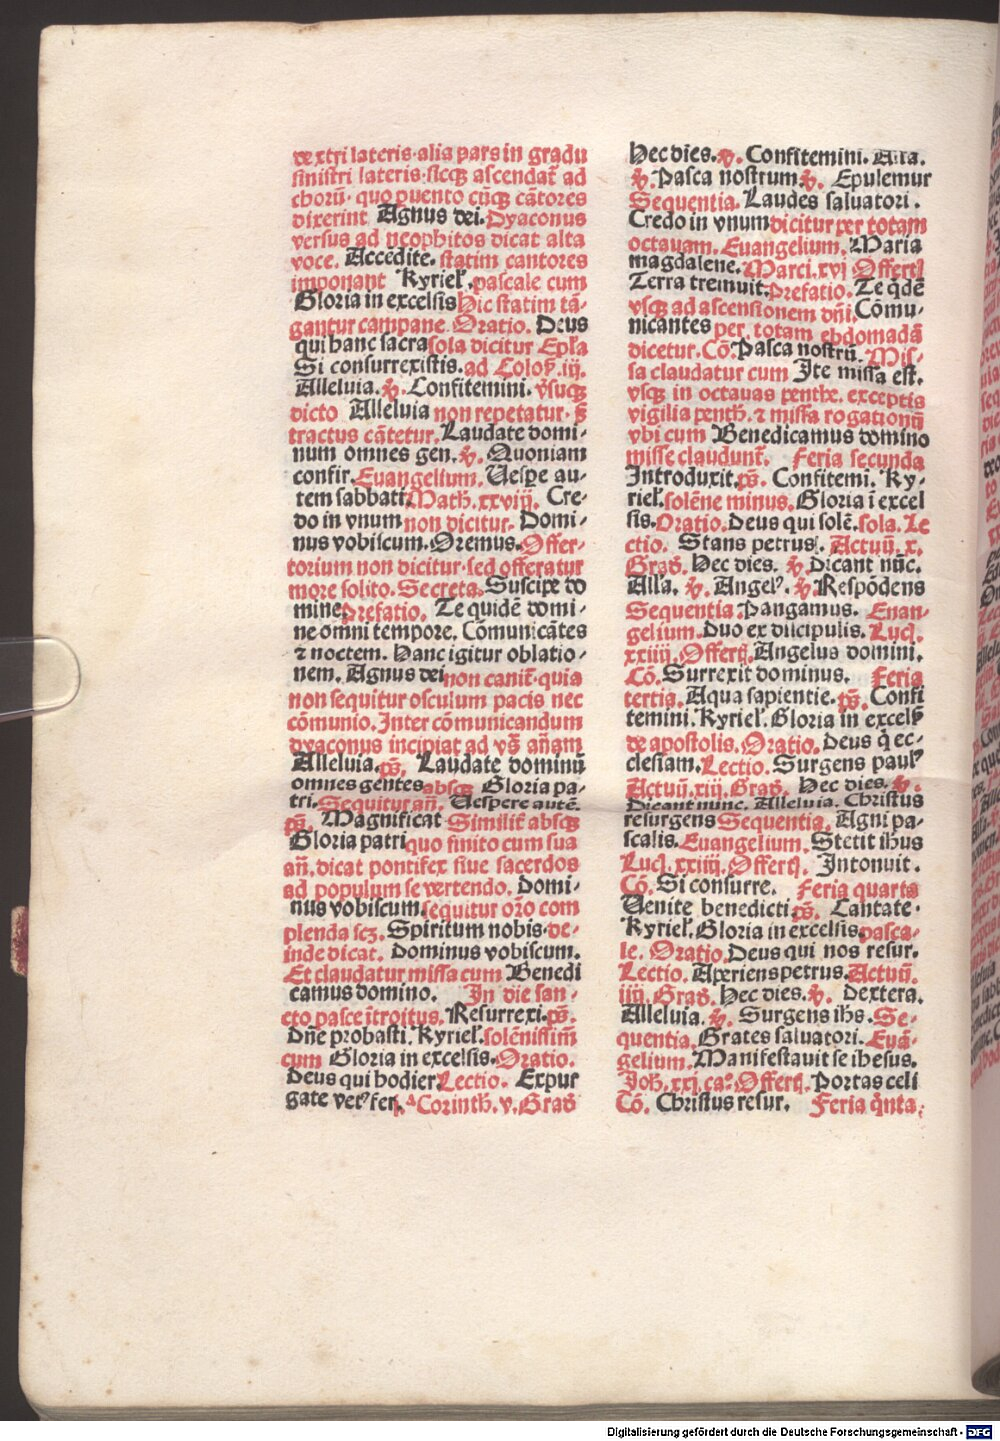 dextri lateris·alia pars in gradu
sinistri lateris·sicqꝫ ascendāt ad
chorū· quo ꝑuento cūqꝫ cātores
dixerint Agnus dei. Dyaconus
versus ad neophitos dicat alta
voce. Accedite. statim cantores
imponant Kyriel̓. pascale cum
Gloria in excelsis hic statim tā-
gantur campane. Oratio. Deus
qui hanc sacra sola dicitur Epl̓a
Si consurrexistis. ad Coloꝭ. iij.
Alleluia. ꝟ. Confitemini. ꝟsuqꝫ
dicto Alleluia non repetatur·
tractus cātetur. Laudate domi-
num omnes gen. ꝟ. Quoniam
confir. Euangelium. Uespe au-
tem sabbati. Math. xxviij. Cre-
do in vnum non dicitur. Domi-
nus vobiscum. Oremus. Offer-
torium non dicitur·sed offeratur
more solito. Secreta. Suscipe do
mine prefatio. Te quidē domi-
ne omni tempore. Cōmunicātes
⁊ noctem. Hanc igitur oblatio-
nem. Agnus dei non canit̄·quia
non sequitur osculum pacis nec
cōmunio. Inter cōmunicandum
dyaconus incipiat ad vs̄ añam
Alleluia. ps̄. Laudate dominū
omnes gentes absqꝫ Gloria pa-
tri. Sequitur añ. Uespere autē.
ps̄. Magnificat Similit̄ absqꝫ
Gloria patri quo finito cum sua
añ. dicat pontifex siue sacerdos
ad populum se vertendo. Domi-
nus vobiscum. sequitur orō com
plenda scꝫ. Spiritum nobis· de-
inde dicat. Dominus vobiscum.
Et claudatur missa cum Benedi
camus domino. In die san-
cto pasce ītroitus. Resurrexi. ps̄.
Dn̄e probasti. Kyriel̓. solēnissim̄
cum Gloria in excelsis. Oratio.
Deus qui hodier Lectio. Expur
gate vetꝰ fer. j.ª Corinth. v. Grad̓
Hec dies. ꝟ. Confitemini. Al̓la.
ꝟ. Pasca nostrum ꝟ. Epulemur
Sequentia. Laudes saluatori.
Credo in vnum dicitur per totam
octauam. Euangelium. Maria
magdalene. Marci. xvj Offert̄
Terra tremuit. Prefatio. Te q̇dē
vsqꝫ ad ascensionem dn̄i. Cōmu-
nicantes per totam ebdomadā
dicetur. Cō. Pasca nostrū. Mis-
sa claudatur cum Ite missa est.
vsqꝫ in octauas penthe. exceptis
vigilia penth̄. ⁊ missa rogationū
vbi cum Benedicamus domino
misse claudunt̄. Feria secunda
Introduxit. ps̄. Confitemi. Ky-
riel̓. solēne minus. Gloria ī excel
sis. Oratio. Deus qui solē. sola. Le
ctio. Stans petrus. Actuū. x.
Grad̓. Hec dies. ꝟ. Dicant nūc.
Al̓la. ꝟ. Angelꝰ. ꝟ. Respōdens
Sequentia Pangamus. Euan-
gelium. Duo ex discipulis. Luc̄.
xxiiij. Offert̄. Angelus domini.
Cō. Surrexit dominus. Feria
tertia. Aqua sapientie. ps̄. Confi
temini. Kyriel̓. Gloria in excelꝭ
de apostolis. Oratio. Deus q̇ ec-
clesiam. Lectio. Surgens paulꝰ
Actuū. xiij. Grad̓. Hec dies. ꝟ.
Dicant nunc. Alleluia. Christus
resurgens Sequentia. Agni pa-
scalis. Euangelium. Stetit ihus
Luc̄. xxiiij. Offert̄. Intonuit.
Cō. Si consurre. Feria quarta
Uenite benedicti ps̄. Cantate·
Kyriel̓. Gloria in excelsis. pasca-
le. Oratio. Deus qui nos resur.
Lectio. Aperiens petrus. Actuū.
iij. Grad̓. Hec dies. ꝟ. Dextera.
Alleluia. ꝟ. Surgens ihs. Se-
quentia. Grates saluatori. Euā-
gelium. Manifestauit se ihesus.
Joh̄. xxj. caº. Offert̄. Portas celi
Cō. Christus resur. Feria q̇nta.
Digitalisierung gefördert durch die Deutsche Forschungsgemeinschaft - DFG